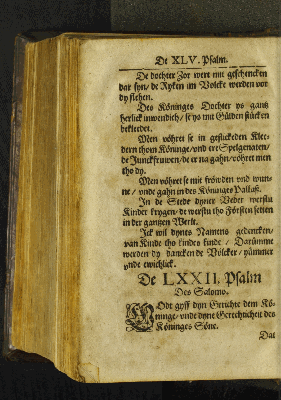 De XLV. Psalm.
De dochter Zor wert mit geschencken
dar syn / de Ryken im Volcke werden vor
dy flehen.
Des Köninges Dochter ys gantz
herlick inwendich / se ys mit Gülden stücken
bekledet.
Men vöhret se in gestickeden Klee-
dern thom Köninge / vnd ere Spelgenaten /
de Junckfruwen / de er na gahn / vöhret men
tho dy.
Men vöhret se mit fröwden vnd wun-
ne / vnde gahn in des Köninges Pallast.
In de Stede dyner Veder werstu
Kinder krygen / de werstu tho Försten setten
in der gantzen Werlt.
Ick wil dynes Namens gedencken /
van Kinde tho kindes kinde / Darümme
werden dy dancken de Völcker / ümmer
vnde ewichlick.
De LXXII. Psalm
Des Salomo.
GOdt gyff dyn Gerichte dem Kö-
ninge / vnde dyne Gerechticheit des
Köninges Söne.
Dat